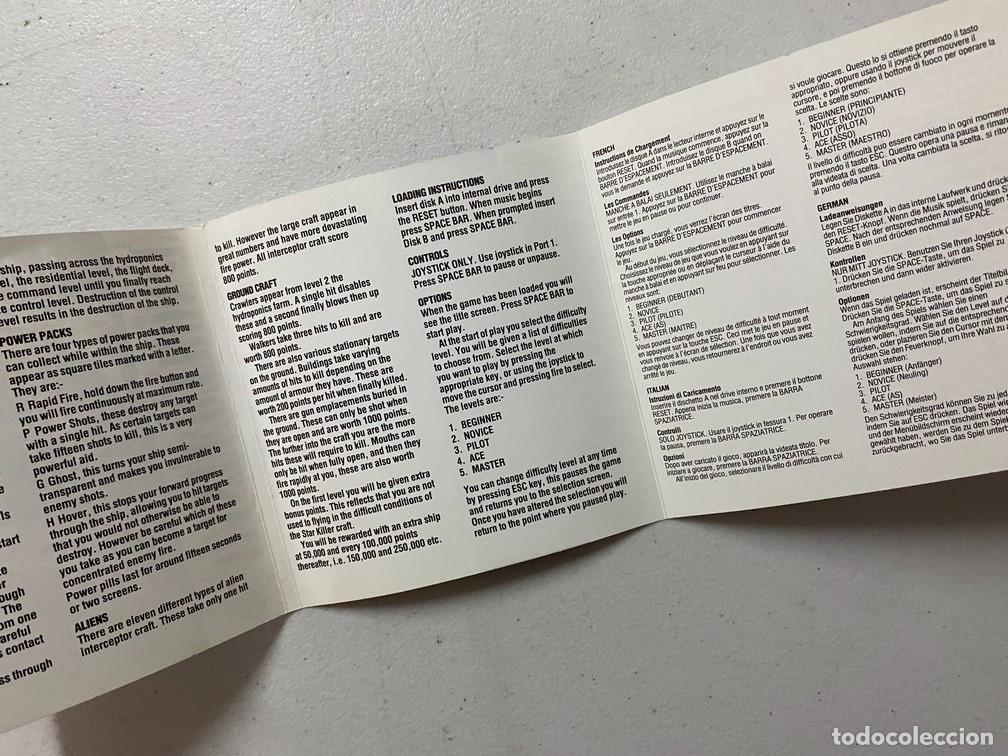 ship, passing across the hydroponics
el, the residential level, the flight deck,
e command level until you finally reach
te control level. Destruction of the control
evel results in the destruction of the ship.
POWER PACKS
There are four types of power packs that you
can collect while within the ship. These
appear as square tiles marked with a letter.
They are:-
R Rapid Fire, hold down the fire button and
you will fire continuously at maximum rate.
P Power Shots, these destroy any target
with a single hit. As certain targets can
take fifteen shots to kill, this is a very
powerful aid.
G Ghost, this turns your ship semi-
transparent and makes you invulnerable to
enemy shots.
H Hover, this stops your forward progress
through the ship, allowing you to hit targets
that you would not otherwise be able to
destroy. However be careful which of these
you take as you can become a target for
concentrated enemy fire.
Power pills last for around fifteen seconds
or two screens.
ALIENS
There are eleven different types of alien
interceptor craft. These take only one hit
to kill. However the large craft appear in
great numbers and have more devastating
fire power. All interceptor craft score
800 points.
GROUND CRAFT
Crawlers appear from level 2 the
hydroponics farm. A single hit disables
these and a second finally blows then up
scoring 800 points.
Walkers take three hits to kill and are
worth 800 points.
There are also various stationary targets
on the ground. Buildings take varying
amounts of hits to kill depending on the
amount of armour they have. These are
worth 200 points per hit when finally killed.
There are gun emplacements buried in
the ground. These can only be shot when
they are open and are worth 1000 points.
The further into the craft you are the more
hits these will require to kill. Mouths can
only be hit when fully open, and then they
fire rapidly at you, these are also worth
1000 points.
On the first level you will be given extra
bonus points. This reflects that you are not
used to flying in the difficult conditions of
the Star Killer craft.
You will be rewarded with an extra ship
at 50,000 and every 100,000 points
thereafter, i.e. 150,000 and 250,000 etc.
LOADING INSTRUCTIONS
Insert disk A into internal drive and press
the RESET button. When music begins
press SPACE BAR. When prompted insert
Disk B and press SPACE BAR.
CONTROLS
JOYSTICK ONLY. Use joystick in Port 1.
Press SPACE BAR to pause or unpause.
OPTIONS
When the game has been loaded you will
see the title screen. Press SPACE BAR to
start play.
At the start of play you select the difficulty
level. You will be given a list of difficulties
to choose from. Select the level at which
you want to play by pressing the
appropriate key, or using the joystick to
move the cursor and pressing fire to select.
The levels are:-
1. BEGINNER
2. NOVICE
3. PILOT
4. ACE
5. MASTER
You can change difficulty level at any time
by pressing ESC key, this pauses the game
and returns you to the selection screen.
Once you have altered the selection you will
return to the point where you paused play.
FRENCH
Instructions de Chargement
Introduisez le disque A dans le lecteur interne et appuyez sur le
bouton RESET. Quand la musique commence, appuyez sur la
BARRE D'ESPACEMENT. Introduisez le disque B quand on
vous le demande et appuyez sur la BARRE D'ESPACEMENT.
Les Commandes
MANCHE A BALAI SEULEMENT. Utilisez le manche à balai
sur entrée 1. Appuyez sur la BARRE D'ESPACEMENT pour
mettre le jeu en pause ou pour continuer.
Les Options
Une fois le jeu chargé, vous verrez l'écran des titres.
Appuyez sur la BARRE D'ESPACEMENT pour commencer
le jeu.
Au début du jeu, vous sélectionnez le niveau de difficulté.
Choisissez le niveau de jeu que vous voulez en appuyant sur
la touche appropriée ou en déplaçant le curseur à l'aide du
manche à balai et en appuyant sur feu pour sélectionner. Les
niveaux sont:
1. BEGINNER (DEBUTANT)
2. NOVICE
3. PILOT (PILOTE)
4. ACE (AS)
5. MASTER (MAITRE)
Vous pouvez changer de niveau de difficulté à tout moment
en appuyant sur la touche ESC. Ceci met le jeu en pause et
vous renvoie à l'écran de sélection. Une fois que vous avez
changé de niveau, vous retournerez à l'endroit ou vous avez
arrêté le jeu.
ITALIAN
Istruzioni di Caricamento
Inserire il dischetto A nel drive interno e premere il bottone
RESET. Appena inizia la musica, premere la BARRA
SPAZIATRICE.
Controlli
SOLO JOYSTICK. Usare il joystick in fessura 1. Per operare
la pausa, premere la BARRA SPAZIATRICE.
Opzioni
Dopo aver caricato il gioco, apparirà la videata titolo. Per
iniziare a giocare, premere la BARRA SPAZIATRICE.
All'inizio del gioco, selezionare il livello di difficoltà con cui
si vuole giocare. Questo lo si ottiene premendo il tasto
appropriato, oppure usando il joystick per mouvere il
cursore, e poi premendo il bottone di fuoco per operare la
scelta. Le scelte sono:
1. BEGINNER (PRINCIPIANTE)
2. NOVICE (NOVIZIO)
3. PILOT (PILOTA)
4. ACE (ASSO)
5. MASTER (MAESTRO)
Il livello di difficoltà può essere cambiato in ogni momento
premendo il tasto ESC. Questro opera una pausa e riman
alla videata di scelta. Una volta cambiata la scelta, si rito
al punto della pausa.
GERMAN
Ladeanweisungen
Legen Sie Diskette A in das interne Laufwerk und drück
den RESET-Knopf. Wenn die Musik spielt, drücken S
SPACE. Nach der entsprechenden Anweisung legen S
Diskette B ein und drücken nochmal auf SPACE.
Kontrollen
NUR MITT JOYSTICK. Benutzen Sie Ihren Joystick i
1. Drücken Sie die SPACE-Taste, um das Spiel zu
unterbrechen und dann wider aktivieren.
Optionen
Wenn das Spiel geladen ist, erscheint der Titelbil
Drücken Sie die SPACE-Taste, um das Spiel zu
Am Anfang des Spiels wählen Sie einen
Schwierigkeitsgrad. Wählen Sie den Level auf
spielen wollen, indem Sie auf die entsprechend
drücken, oder plazieren Sie den Cursor mit de
drücken Sie den Feuerknopf, um Ihre Wahl d
Auswahl stehen:
1. BEGINNER (Anfänger)
2. NOVICE (Neuling)
3. PILOT
4. ACE (AS)
5. MASTER (Meister)
Den Schwierigkeitsgrad können Sie zu jed
indem Sie auf ESC drücken. Das Spiel wi
und der Menübildschirm erscheint wiede
gewählt haben, werden Sie zu dem Spiel
zurückgebracht, wo Sie das Spiel unterb
start
ough
The
om one
areful
s contact
ss through
todocoleccion